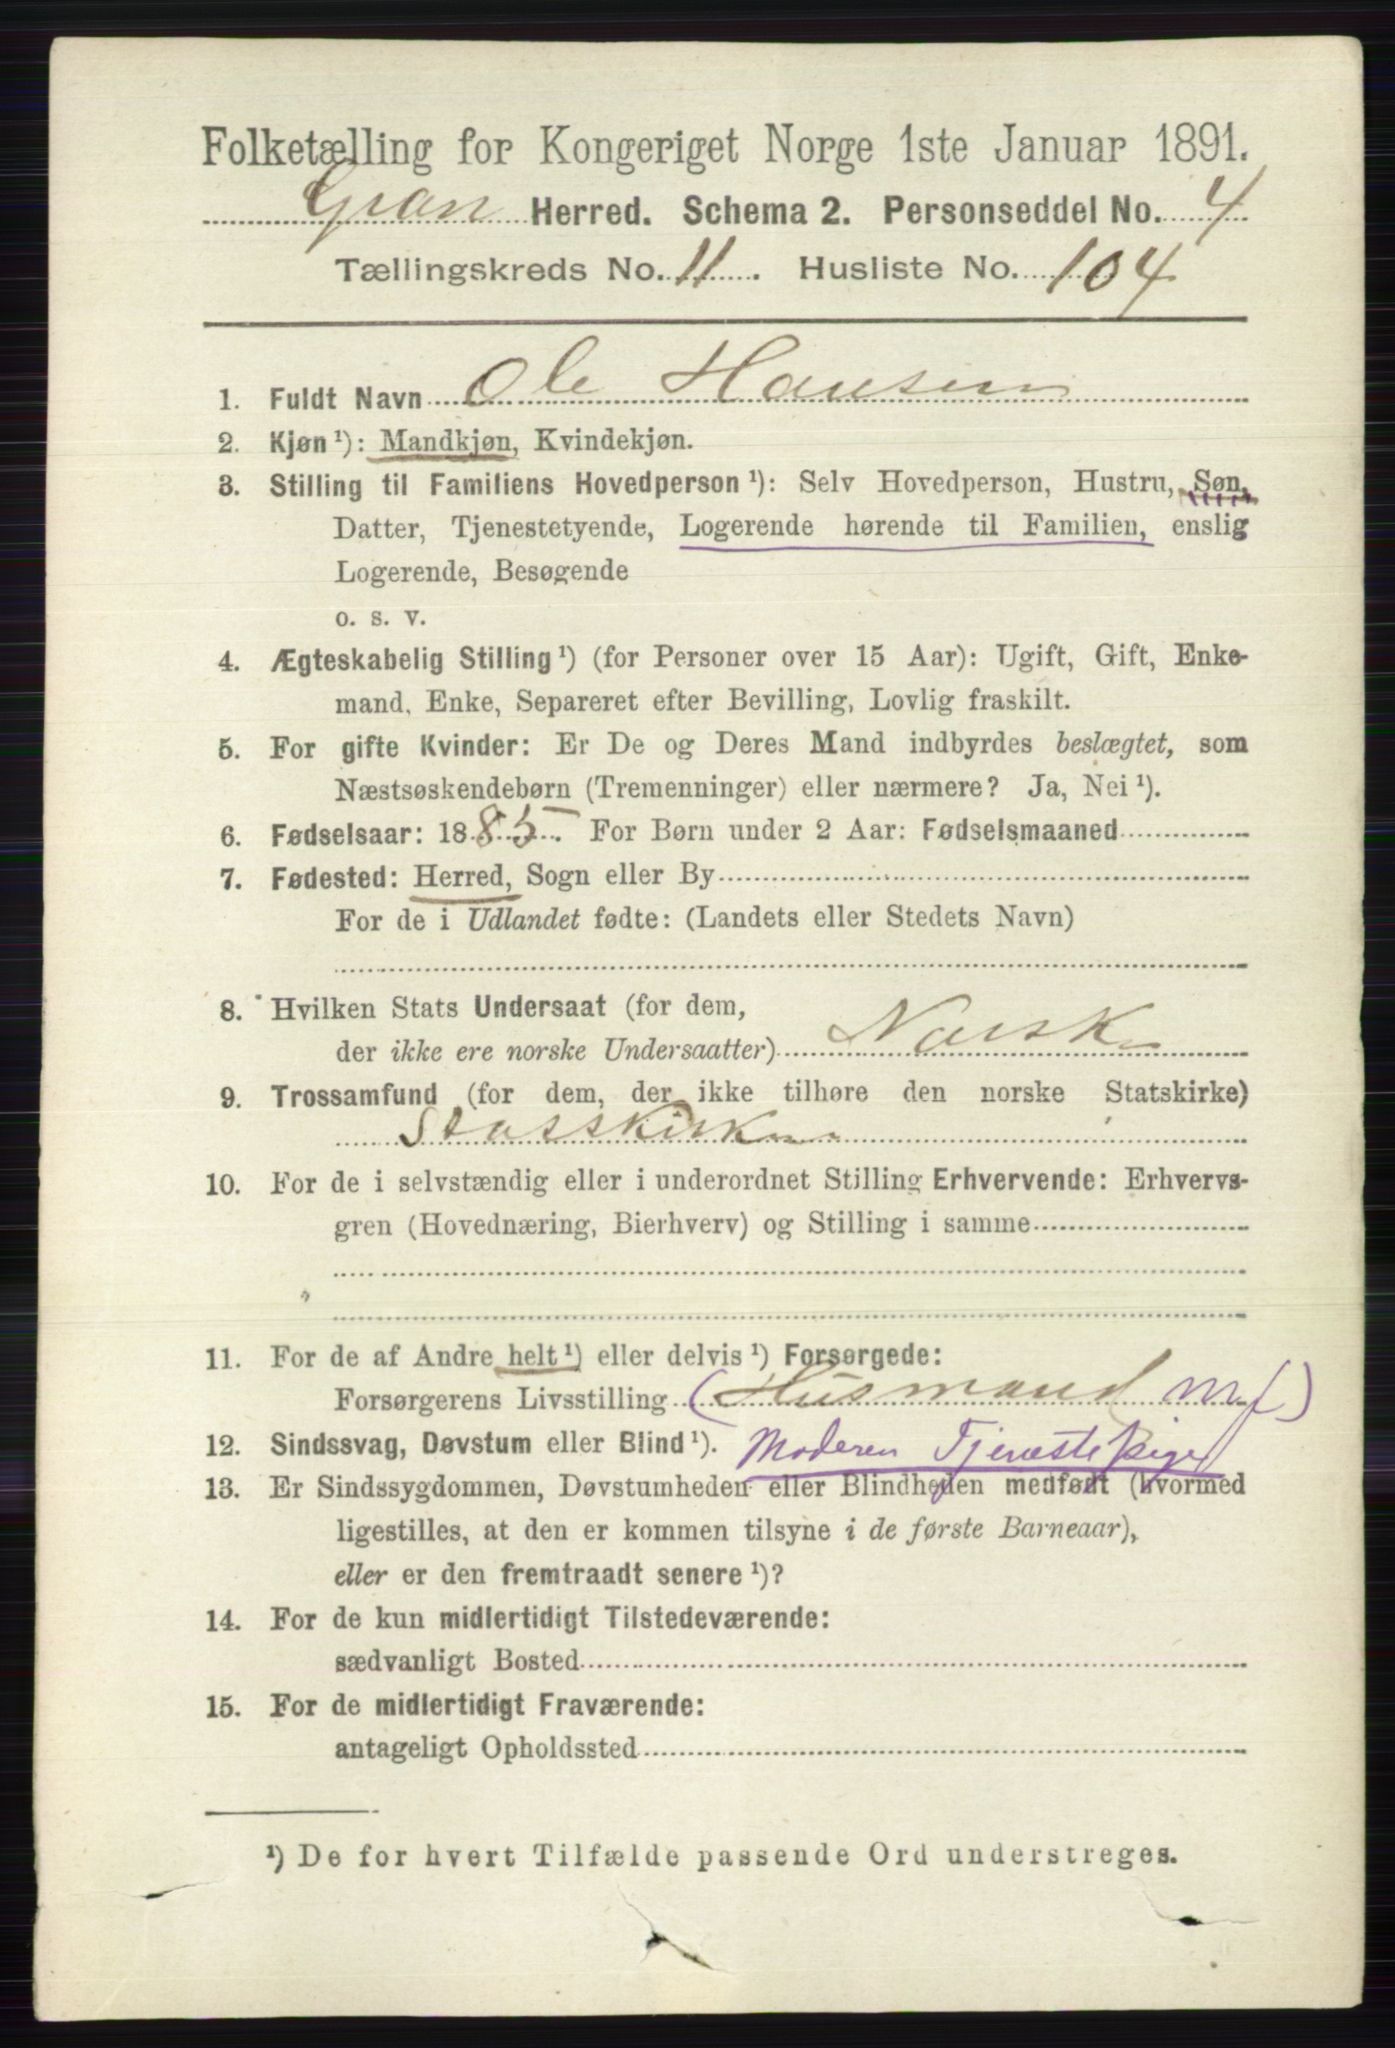 Folketælling for Kongeriget Norge 1ste Januar 1891.
Gran Herred. Schema 2. Personseddel No. 4
Tællingskreds No. 11. Husliste No. 104
1. Fuldt Navn Ole Hansen
2. Kjøn ¹): Mandkjøn, Kvindekjøn.
3. Stilling til Familiens Hovedperson ¹): Selv Hovedperson, Hustru, Søn,
Datter, Tjenestetyende, Logerende hørende til Familien, enslig
Logerende, Besøgende
o. s. v.
4. Ægteskabelig Stilling ¹) (for Personer over 15 Aar): Ugift, Gift, Enke-
mand, Enke, Separeret efter Bevilling, Lovlig fraskilt.
5. For gifte Kvinder: Er De og Deres Mand indbyrdes beslægtet, som
Næstsøskendebørn (Tremenninger) eller nærmere? Ja, Nei ¹).
6. Fødselsaar: 1885. For Børn under 2 Aar: Fødselsmaaned
7. Fødested: Herred, Sogn eller By
For de i Udlandet fødte: (Landets eller Stedets Navn)
8. Hvilken Stats Undersaat (for dem,
der ikke ere norske Undersaatter) Norsk
9. Trossamfund (for dem, der ikke tilhøre den norske Statskirke)
Statskirken
10. For de i selvstændig eller i underordnet Stilling Erhvervende: Erhvervs-
gren (Hovednæring, Bierhverv) og Stilling i samme
11. For de af Andre helt ¹) eller delvis ¹) Forsørgede:
Forsørgerens Livsstilling (Husmand m f)
12. Sindssvag, Døvstum eller Blind ¹). Moderen Tjenestepige
13. Er Sindssygdommen, Døvstumheden eller Blindheden medfødt (hvormed
ligestilles, at den er kommen tilsyne i de første Barneaar),
eller er den fremtraadt senere ¹)?
14. For de kun midlertidigt Tilstedeværende:
sædvanligt Bosted
15. For de midlertidigt Fraværende:
antageligt Opholdssted
¹) De for hvert Tilfælde passende Ord understreges.